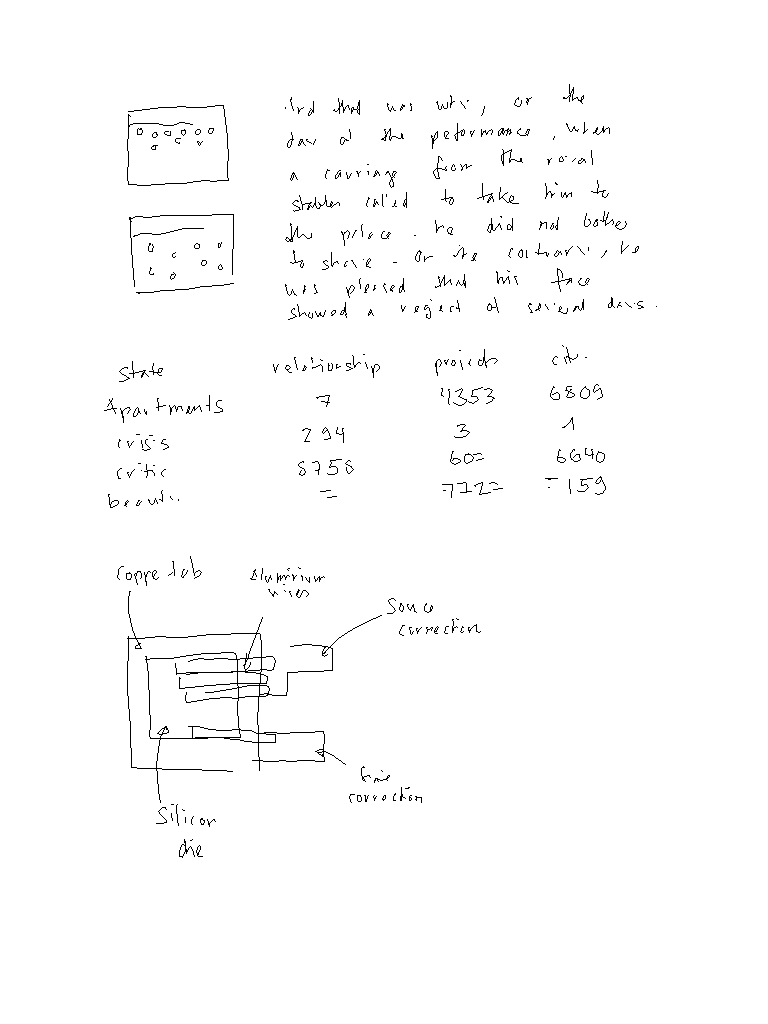 And that was why, on the
day of the peformance, when
a carriage from the royal
stables called to take him to
the palace. he did not bother
to shave. On the contrary, he
was pleased that his face
showed a neglect of several days.
state relationship projects city
Apartments 7 4353 6809
crisis 294 3 1
critic 8758 60= 6640
beauty = 772= =159
Copper tab
Aluminium
wires
Source
connection
Gate
connection
Silicon
die